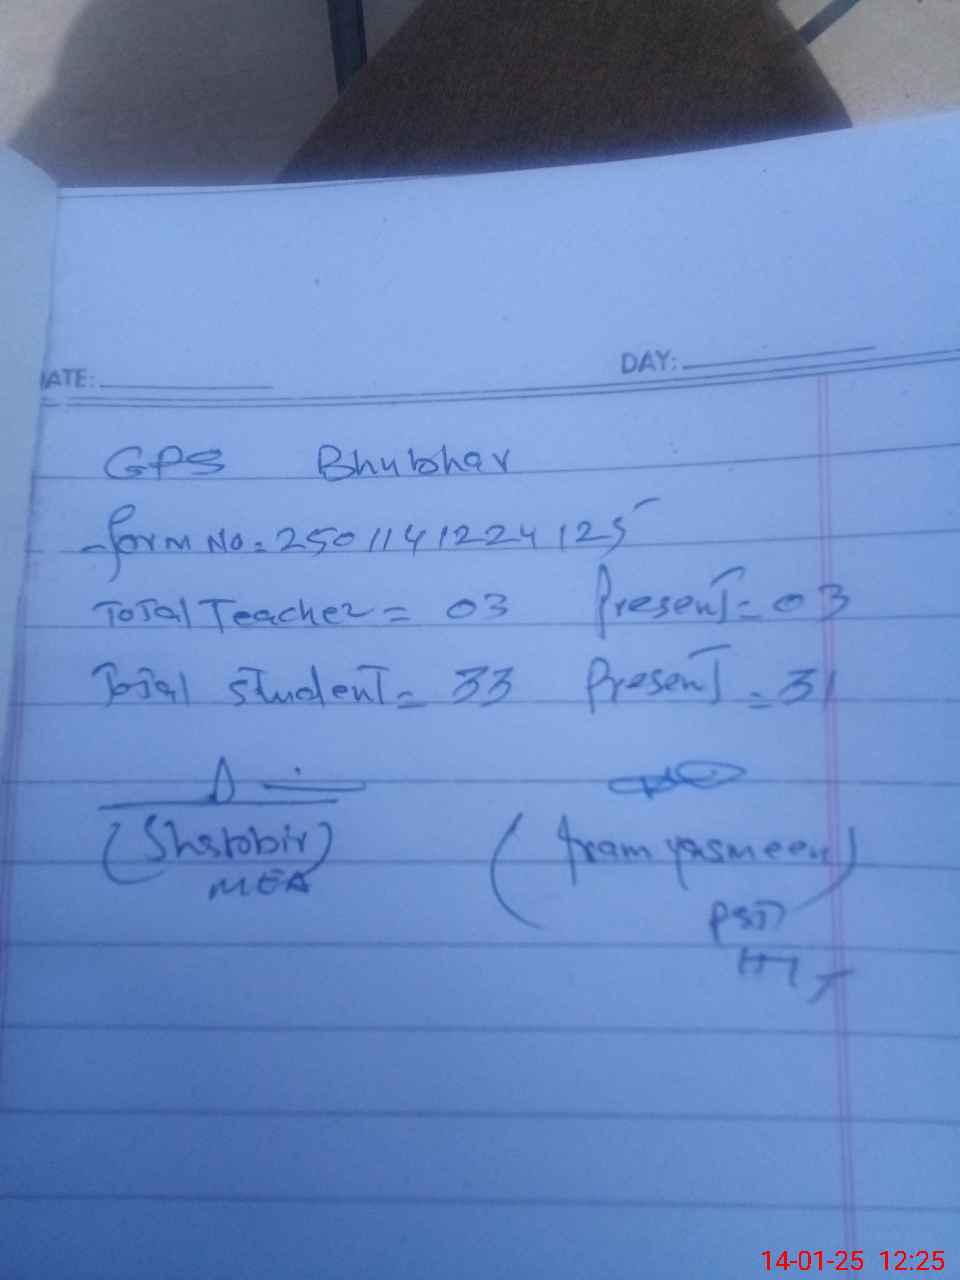 DATE: DAY:
GPS Bhubhar
form No = 2501141224125
Total Teacher = 03 Present = 03
Total student = 33 Present = 31
(Shabbir) (Iram yasmeen)
MEA
PST
14-01-25 12:25